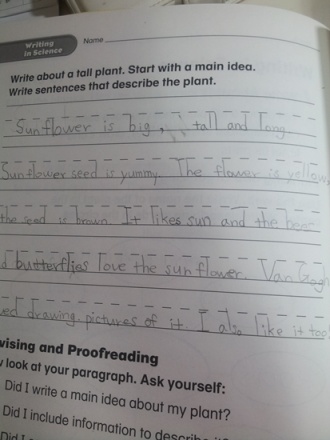 Writing
in Science
Name
Write about a tall plant. Start with a main idea.
Write sentences that describe the plant.
Sunflower is big, tall and long.
Sunflower seed is yummy. The flower is yellow,
the seed is brown. It likes sun and the bees
butterflies love the sunflower. Van Gogh
drawing pictures of it. I also like it too
vising and Proofreading
look at your paragraph. Ask yourself:
Did I write a main idea about my plant?
Did I include information to describe
Did I